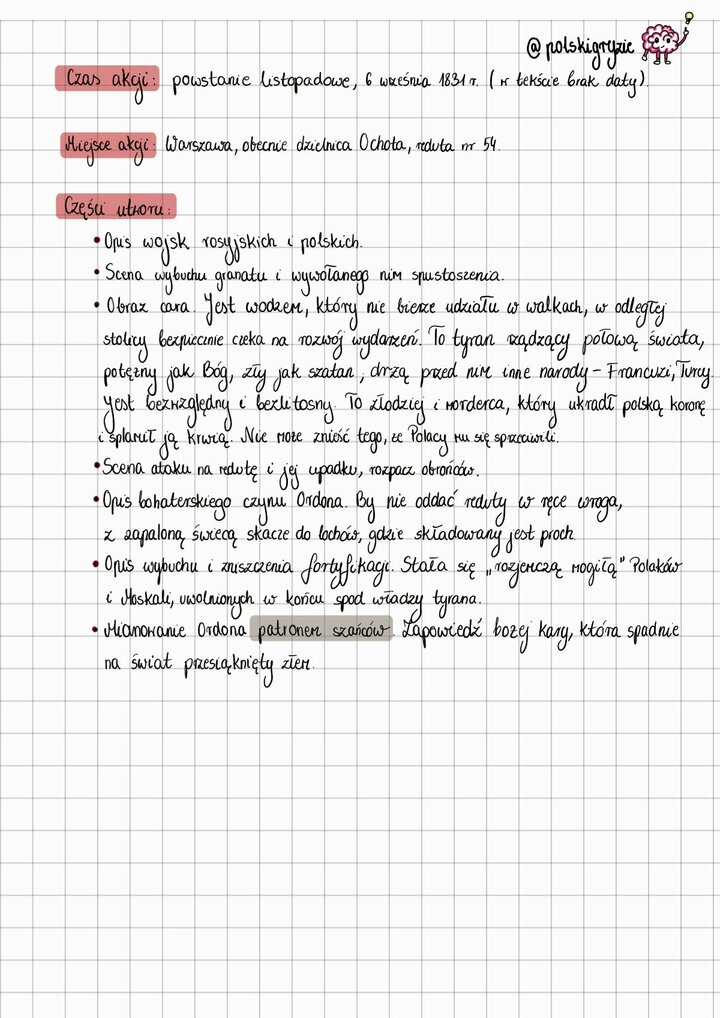 @polskigryzie
Czas akcji: powstanie listopadowe, 6 września 1831 r. (w tekście brak daty).
Miejsce akcji: Warszawa, obecnie dzielnica Ochota, reduta nr 54.
Części utworu:
• Opis wojsk rosyjskich i polskich.
• Scena wybuchu granatu i wywołanego nim spustoszenia.
• Obraz cara. Jest wodzem, który nie bierze udziału w walkach, w odległej
stolicy bezpiecznie czeka na rozwój wydarzeń. To tyran rządzący połową świata,
potężny jak Bóg, zły jak szatan, drżą przed nim inne narody – Francuzi, Turcy.
Jest bezwzględny i bezlitosny. To złodziej i morderca, który ukradł polską koronę
i splamił ją krwią. Nie może znieść tego, że Polacy mu się sprzeciwili.
• Scena ataku na redutę i jej upadku, rozpacz obrońców.
• Opis bohaterskiego czynu Ordona. By nie oddać reduty w ręce wroga,
z zapaloną świecą skacze do lochów, gdzie składowany jest proch.
• Opis wybuchu i zniszczenia fortyfikacji. Stała się „rozjemczą mogiłą" Polaków
i Moskali, uwolnionych w końcu spod władzy tyrana.
• Mianowanie Ordona patronem szańców. Zapowiedź bożej kary, która spadnie
na świat przesiąknięty złem.